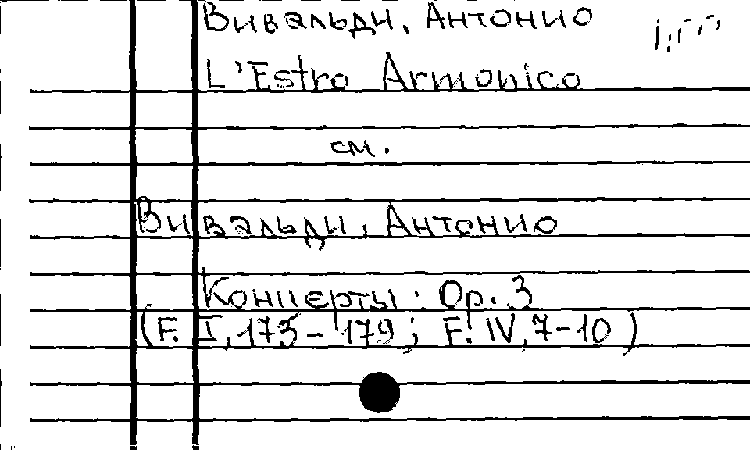 Вивальди, Антонио
L'Estro Armonico
см.
Вивальди, Антонио
Концерты: Op. 3
(F. I, 173-179; F. IV, 7-10)